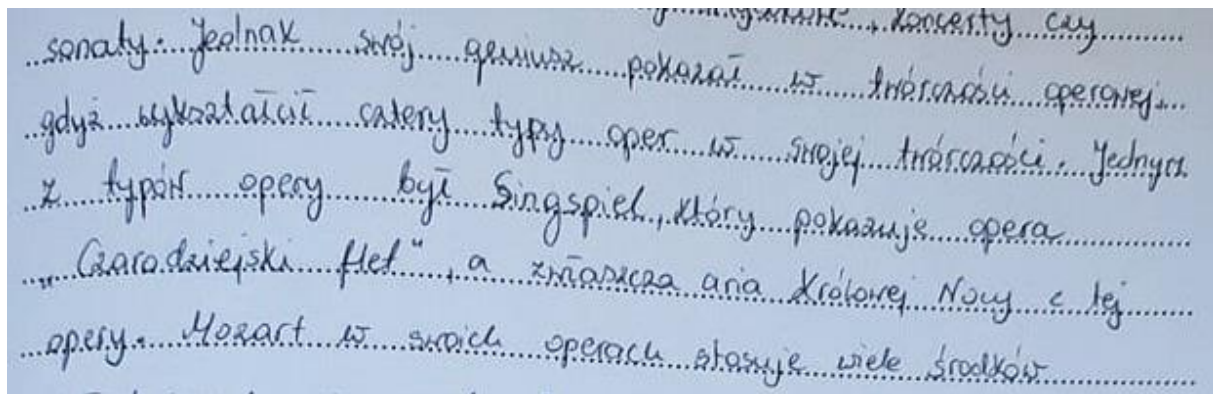 koncerty czy
sonaty. Jednak swój geniusz pokazał w twórczości operowej.
gdyż wykształcił cztery typy oper w swojej twórczości. Jednym
z typów opery był Singspiel, który pokazuje opera
„Czarodziejski flet", a zwłaszcza aria Królowej Nocy z tej
opery. Mozart w swoich operach stosuje wiele środków